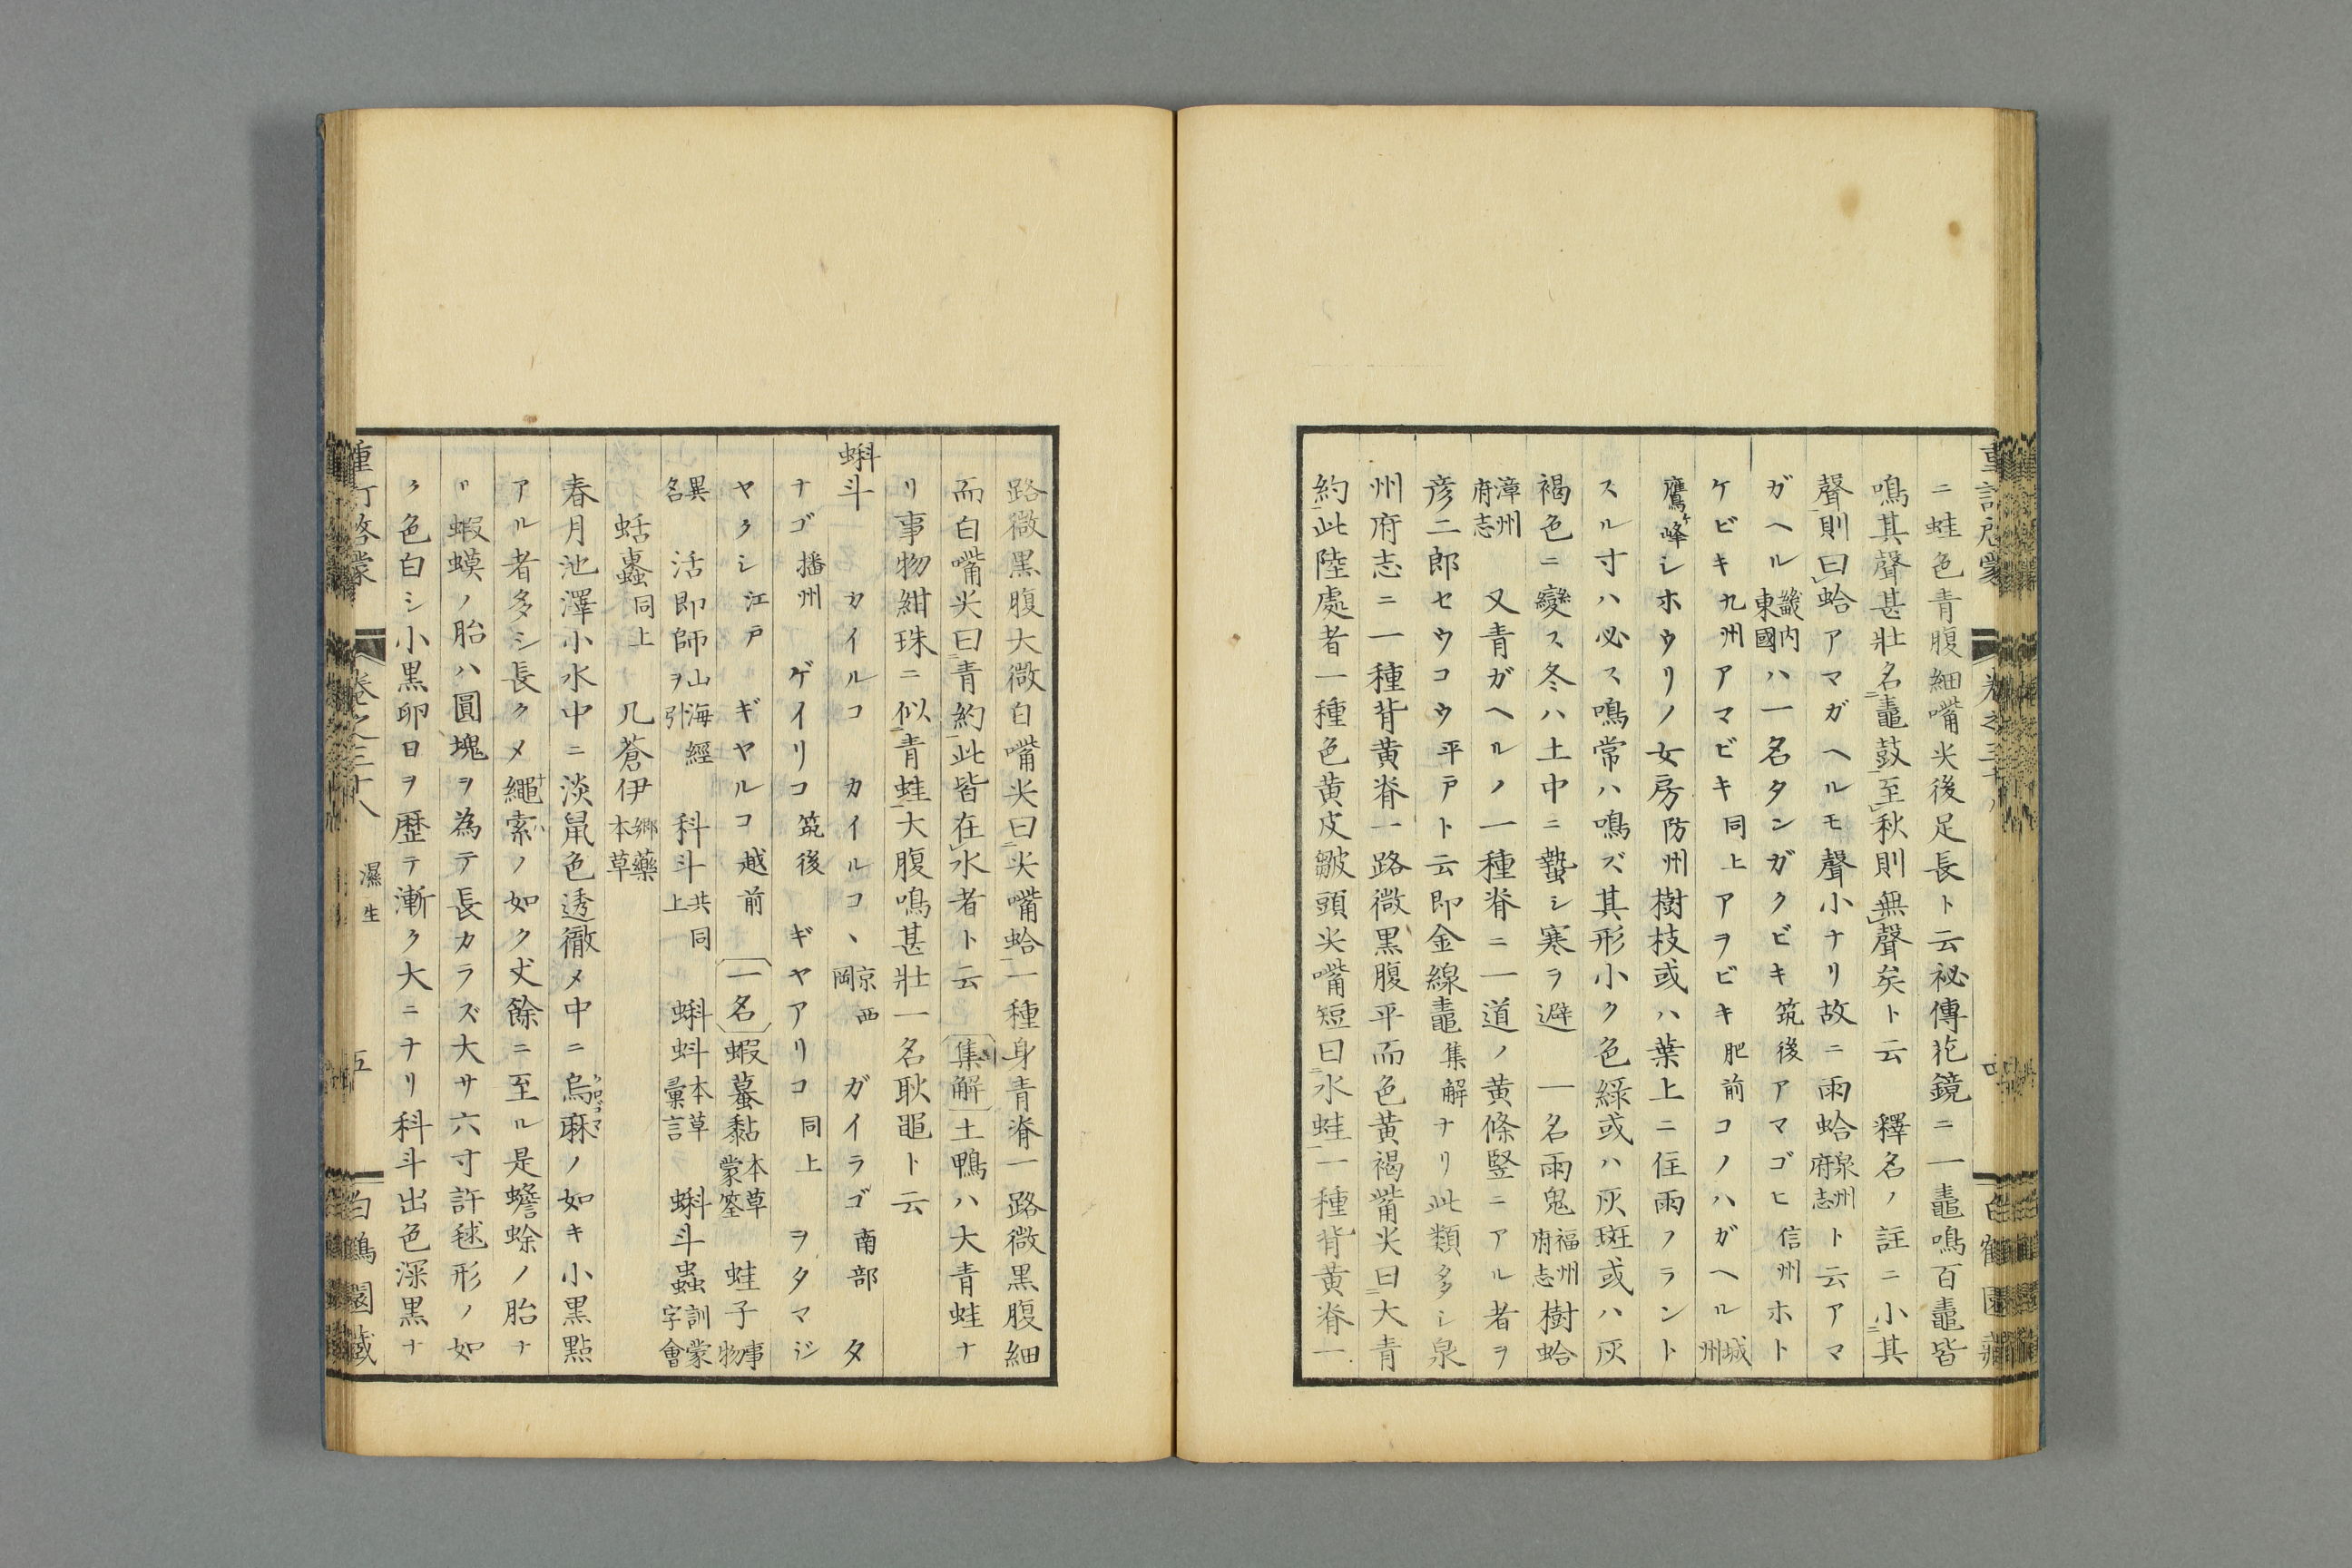 ニ蛙色青腹細嘴尖後足長ト云祕傳花鏡ニ一鼃鳴百鼃皆
鳴其聲甚壯名鼃鼓至秋則無聲矣ト云　釋名ノ註ニ小其
聲則曰蛤アマガヘルモ聲小ナリ故ニ雨蛤泉州府志ト云アマ
ガヘル畿内東國ハ一名タンガクビキ筑後アマゴヒ信州ホト
ケビキ九州アマビキ同上アヲビキ肥前コノハガヘル城州
鷹ケ峰シホウリノ女房防州樹枝或ハ葉上ニ住雨フラント
スル寸ハ必ス鳴常ハ鳴ズ其形小ク色緑或ハ灰斑或ハ灰
褐色ニ變ス冬ハ土中ニ蟄シ寒ヲ避　一名雨鬼福州府志樹蛤
漳州府志　又青ガヘルノ一種脊ニ一道ノ黄條竪ニアル者ヲ
彦二郎セウコウ平戸ト云即金線鼃集解ナリ此類多シ泉
州府志ニ一種背黄脊一路微黒腹平而色黄褐嘴尖曰大青
約此陸處者一種色黄皮皺頭尖嘴短曰水蛙一種背黄脊一
路微黒腹大微白嘴尖曰尖嘴蛤一種身青脊一路微黒腹細
而白嘴尖曰青約此皆在水者ト云　集解土鴨ハ大青蛙ナ
リ事物紺珠ニ似青蛙大腹鳴甚壯一名耿黽ト云
蝌斗　カイルコ　カイルコヽ京西岡　ガイラゴ南部　タ
ナゴ播州　ゲイリコ筑後　ギヤアリコ同上　ヲタマジ
ヤクシ江戸　ギヤルコ越前　一名蝦蟇黏本草蒙筌　蛙子事物
異名　活即師山海經ヲ引　科斗共同上　蝌蚪本草彙言　蝌斗蟲訓蒙字會
蛞蠹同上　凡蒼伊郷藥本草
春月池澤小水中ニ淡鼠色透徹メ中ニ烏麻クロゴマノ如キ小黒點
アル者多シ長クメ繩索ノ如ク丈餘ニ至ル是蟾蜍ノ胎ナ
リ蝦蟆ノ胎ハ圓塊ヲ為テ長カラズ大サ六寸許毬形ノ如
ク色白シ小黒卵日ヲ歴テ漸ク大ニナリ科斗出色深黒ナ
重訂啓蒙　卷之三十八　濕生　五　白鶴園藏